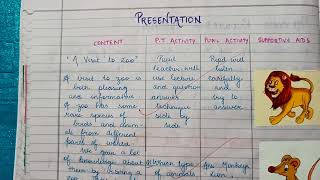 PRESENTATION
CONTENT P.T ACTIVITY PUPIL ACTIVITY SUPPORTIVE AIDS
"A Visit to Zoo"
A visit to zoo is
both pleasing
and informative
A zoo has some
rare species of
birds and anim-
als from different
parts of world.
We gain a lot
of knowledge about
them by visiting a
Pupil
teacher will
use lecture
and question
answer
technique
side by
side
Which type
of animals
Pupil will
listen
carefully
and
try to
answer
Monkeys
Lion